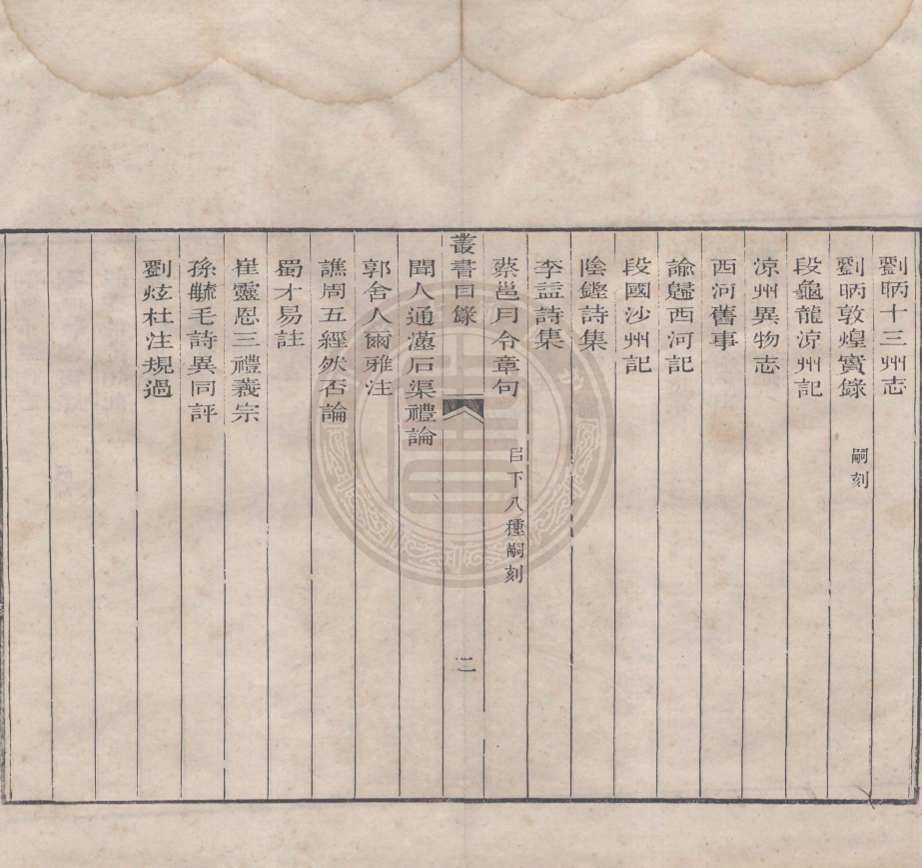 劉昞十三州志
劉昞敦煌實錄 嗣刻
段龜龍涼州記
涼州異物志
西河舊事
諭歸西河記
段國沙州記
陰鏗詩集
李益詩集
蔡邕月令章句 㠯下八種嗣刻
叢書目錄 二
聞人通漢石渠禮論
郭舍人爾雅注
譙周五經然否論
蜀才易註
崔靈恩三禮義宗
孫毓毛詩異同評
劉炫杜注規過